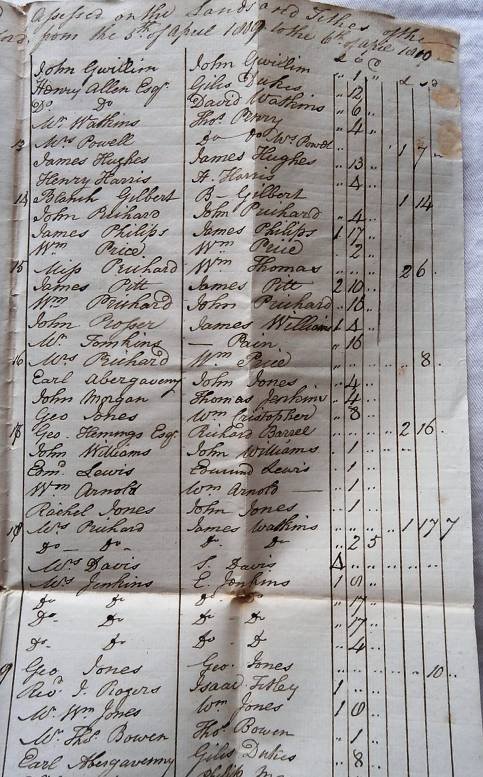 assessed on the Lands and Tithes of the
from the 5th of April 1809 to the 6th of April 1810
£ s d
John Gwillim John Gwillim " 1 "
£ s d
Henry Allen Esqr. Giles Dukes " 12 "
Do. Do David Watkins " 6 "
Mr Watkins Thos Penry " 4 "
Mrs Powell Do Do Mrs Powell 1 7
James Hughes James Hughes " 13 "
Henry Harris H. Harris " 4 "
14 Blanch Gilbert B- Gilbert 1 14
John Prichard John Prichard " 4 "
James Philips James Philips 1 17 "
Wm Price Wm Price " 2 "
15 Miss Prichard Wm Thomas 2 6
James Pitt James Pitt 2 10 "
Wm Prichard John Prichard " 16 "
John Proper James Williams 1 4 "
Mr Tomkins — Pain " 16
16 Mrs Prichard Wm Price 8
Earl Abergavenny John Jones " 4 "
John Morgan Thomas Jenkins " 4 "
Geo Jones Wm Cristopher " 8
Geo. Hemings Esqr. Richard Barrel 2 16
John Williams John Williams " 1 "
Edmd Lewis Edmund Lewis " 1 "
Wm Arnold Wm Arnold — " 1 "
Rachel Jones John Jones " 1 "
18 Mrs Prichard James Watkins 1 17 7
Do — Do Do Do " 2 5
Mrs Davis S. Davis 4
Mrs Jenkins E Jenkins 1 8 "
Do Do Do Do " 17 "
Do. Do. Do - Do " 17 "
Do. Do Do Do " 4
9 Geo Jones Geo. Jones 10
Revd J. Rogers Isaac Titley 1
Mr Wm Jones Wm Jones 1 8
Mr Thos Bowen Thos Bowen " 1 "
Earl Abergavenny Giles Dukes " 8 "
Philip